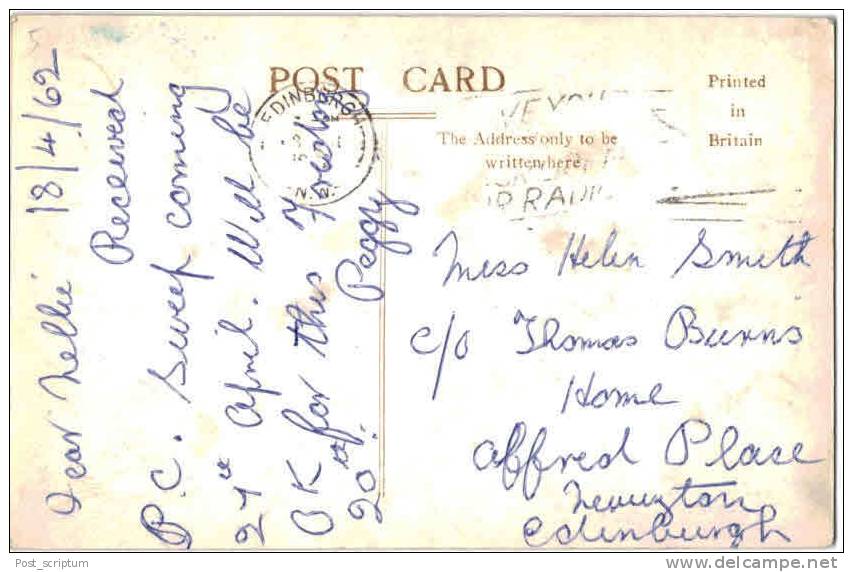 18/4/62
Dear Nellie
Received
P.C. Sweep coming
27th April. Will be
OK for this Friday
20th. Peggy
POST CARD
Printed
in
Britain
The Address only to be
written here
EDINBURGH
N.W.
Miss Helen Smith
c/o Thomas Burns
Home
Alfred Place
Newington
Edinburgh
Post_scriptum
delcampe.net